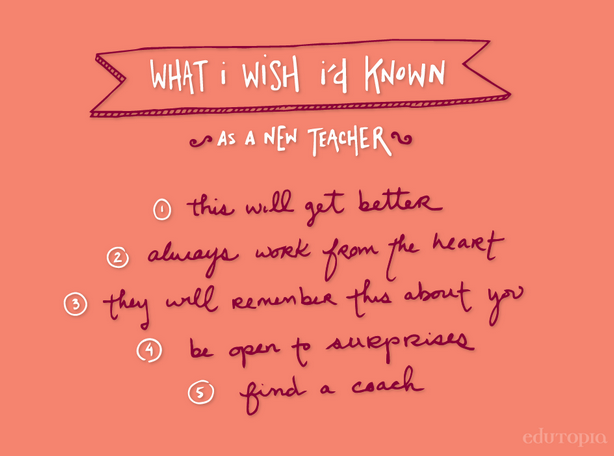 WHAT i WISH i'd KNOWN
AS A NEW TEACHER
1 this will get better
2 always work from the heart
3 they will remember this about you
4 be open to surprises
5 find a coach
edutopia